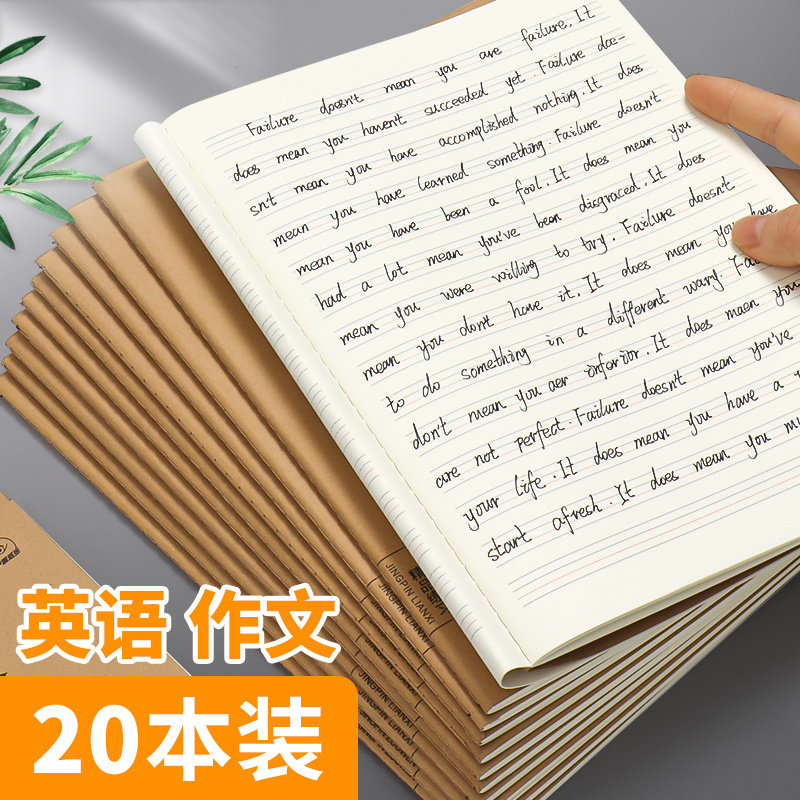 Failure doesn't mean you are failure. It
does mean you haven't succeeded yet. Failure doe-
sn't mean you have accomplished nothing. It does
mean you have learned something. Failure doesn't
mean you have been a fool. It does mean you
had a lot mean you've been disgraced. It does
mean you were willing to try. Failure doesn't
mean you don't have it. It does mean you have
to do something in a different way.
don't mean you aer inferior. It does maen you
are not perfect. Failure doesn't mean you've
your life. It does mean you have a
start afresh. It does mean you
JINGPIN LIANXI
JINGPIN LIANXI
JINGPIN LIANXI
英语 作文
20本装